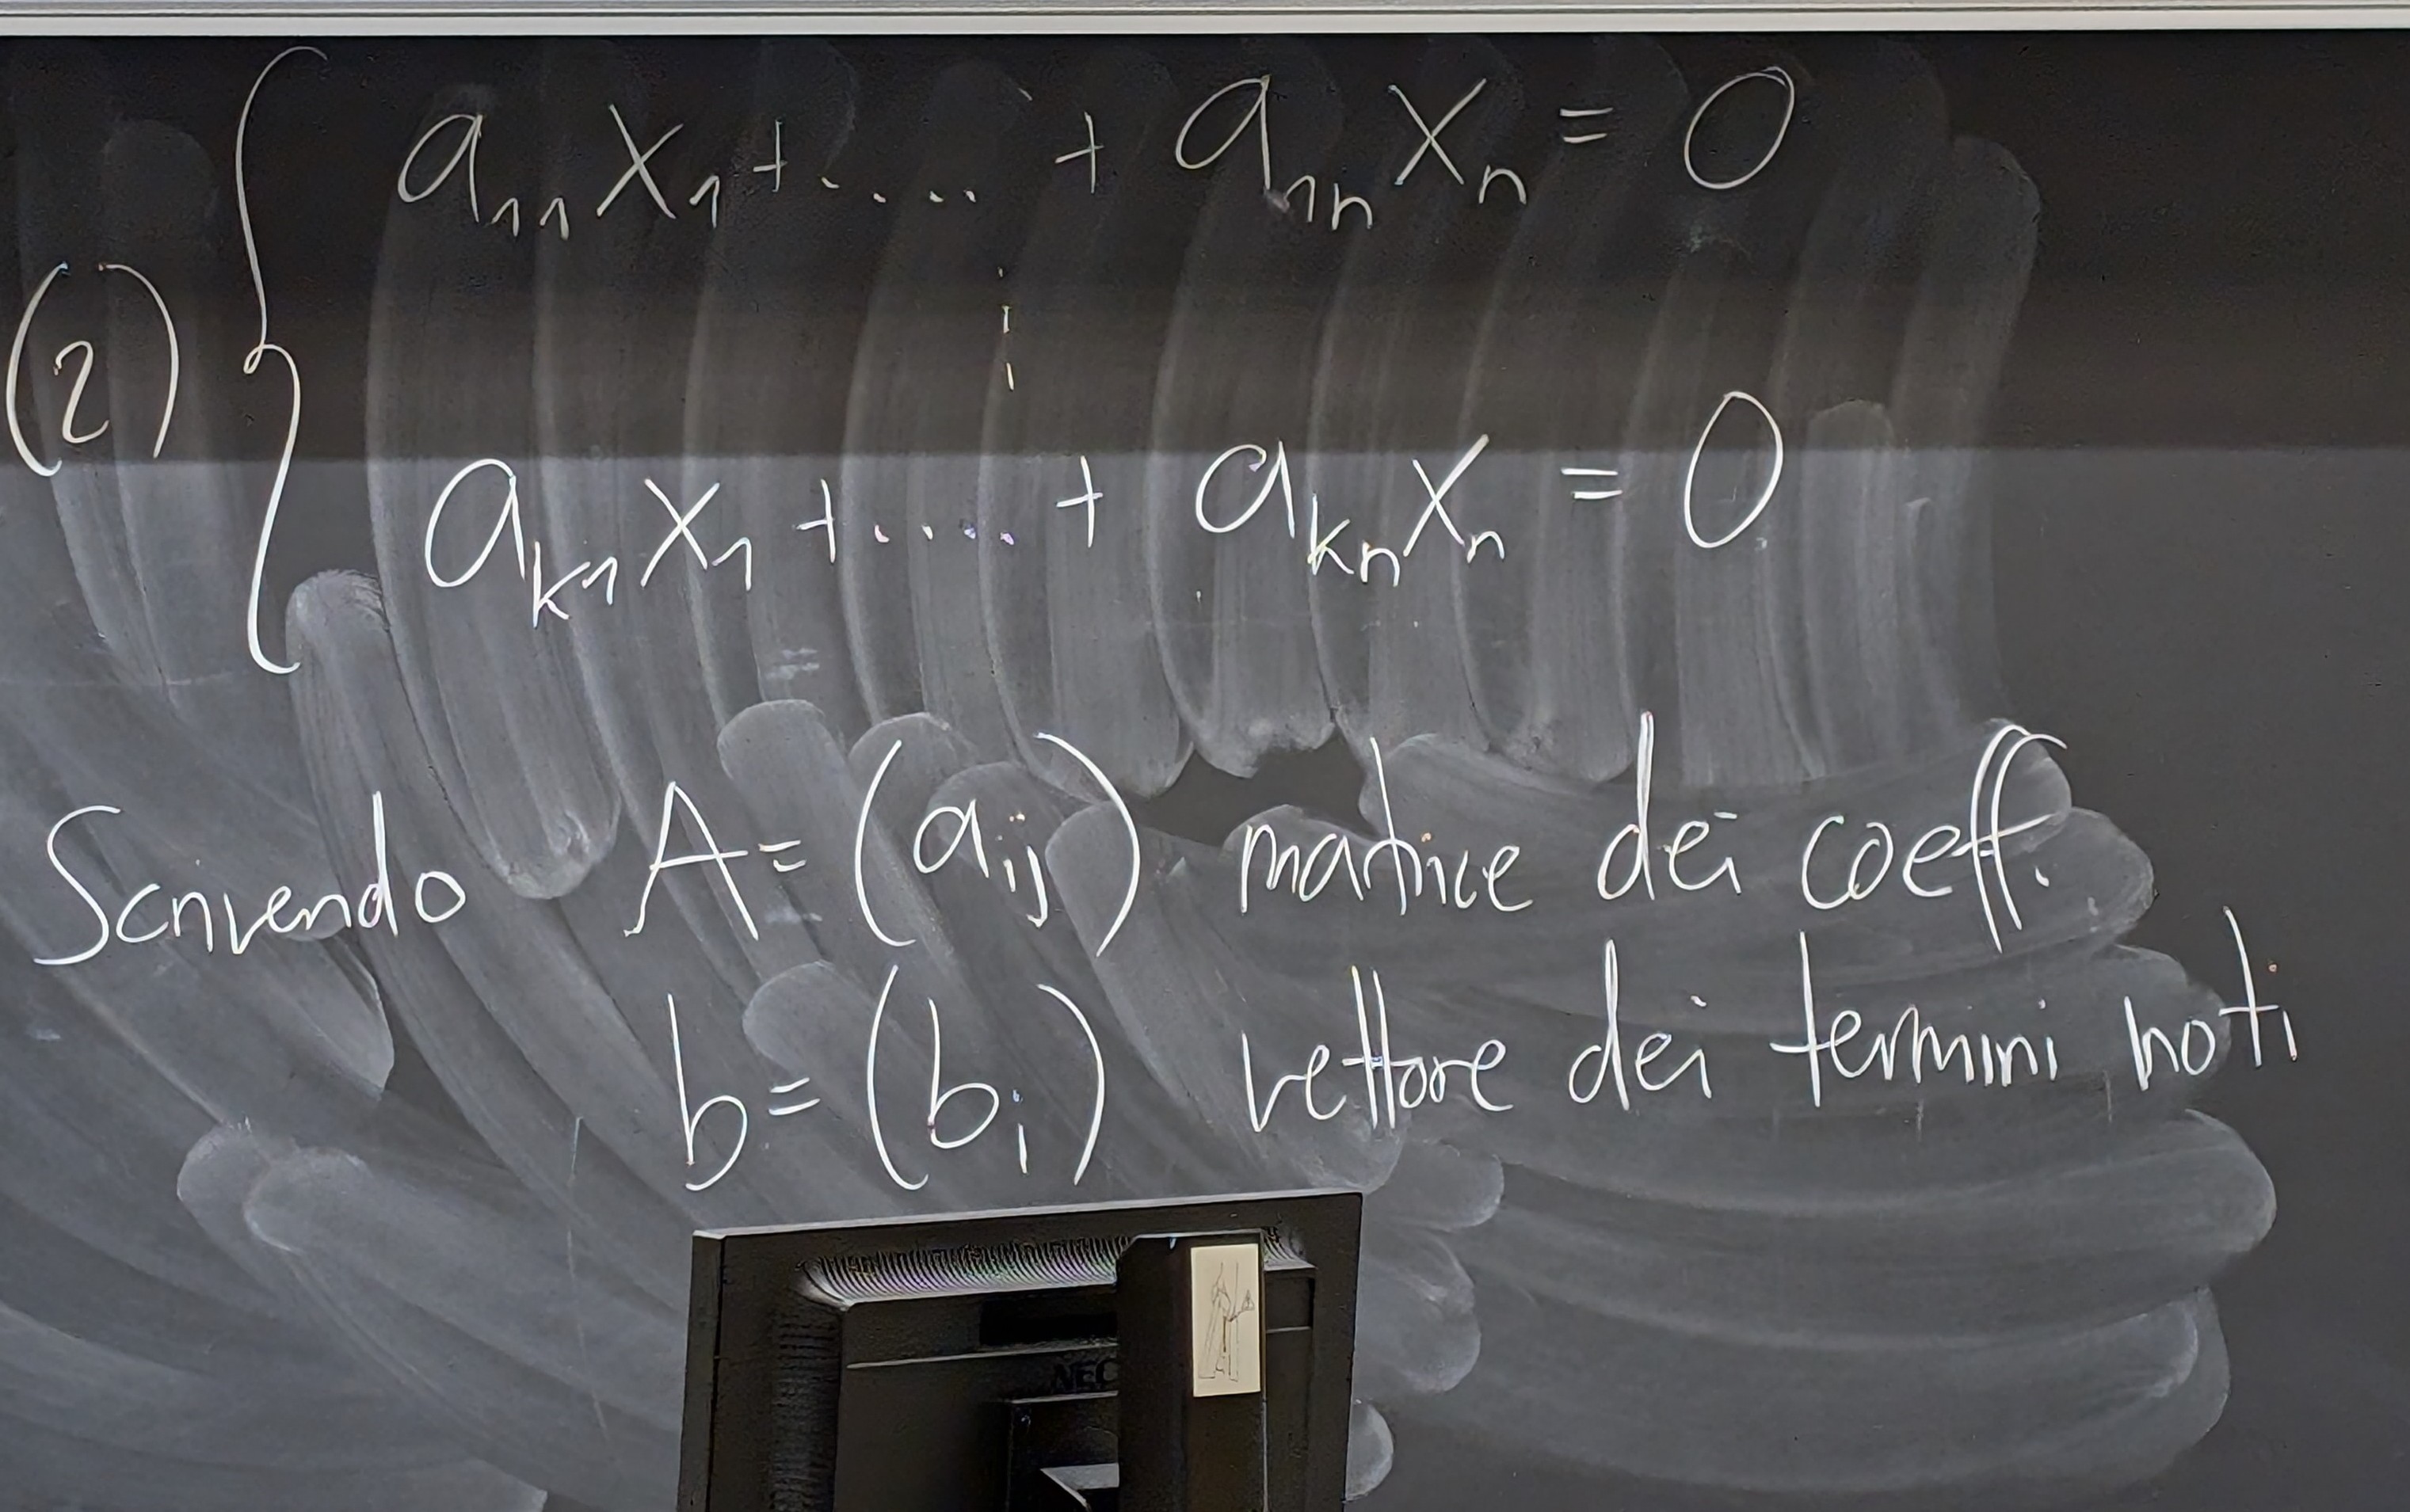 a₁₁x₁ + .... + a₁ₙxₙ = 0
(2) {
⋮
aₖ₁x₁ + .... + aₖₙxₙ = 0
Scrivendo A = (aᵢⱼ) matrice dei coeff.
b = (bᵢ) vettore dei termini noti
NEC